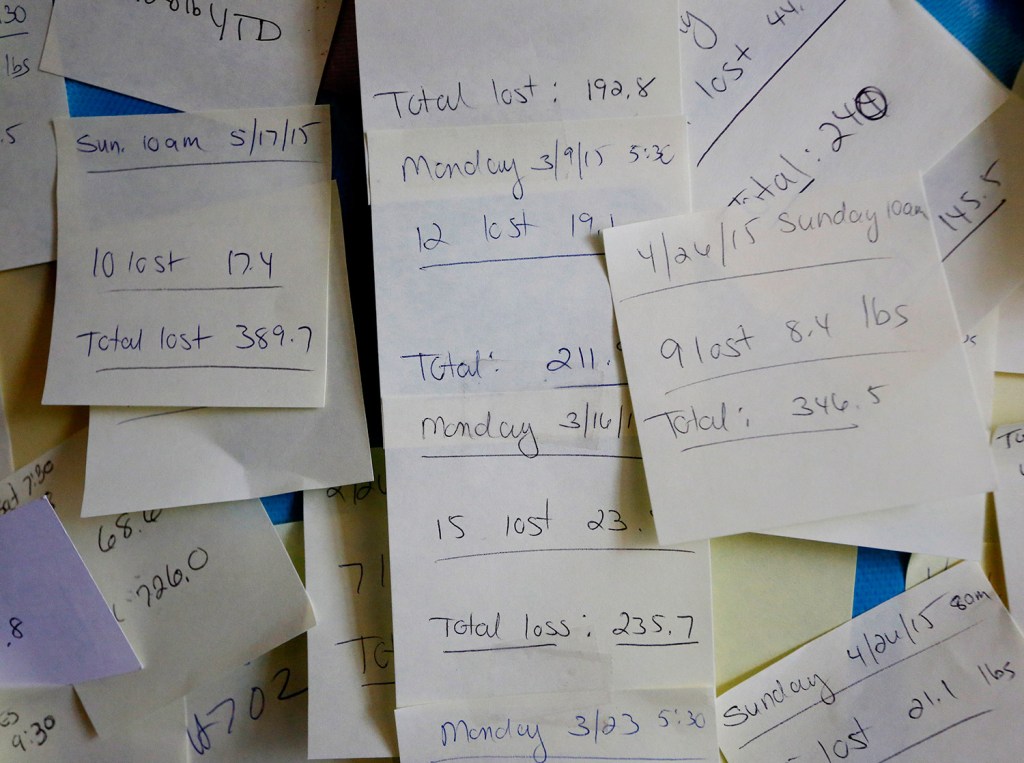 :30
lbs
.5
YTD
Sun. 10am 5/17/15
10 lost 17.4
Total lost 389.7
Total lost: 192.8
Monday 3/9/15 5:30
12 lost 19.1
Total: 211.
Monday 3/16/1
15 lost 23.
Total loss: 235.7
Monday 3/23 5:30
lost 44.
145.5
4/26/15 Sunday 10am
9 lost 8.4 lbs
Total: 346.5
7:30
68.6
726.0
.8
9:30
702
71
Sunday 4/26/15 8am
lost 21.1 lbs